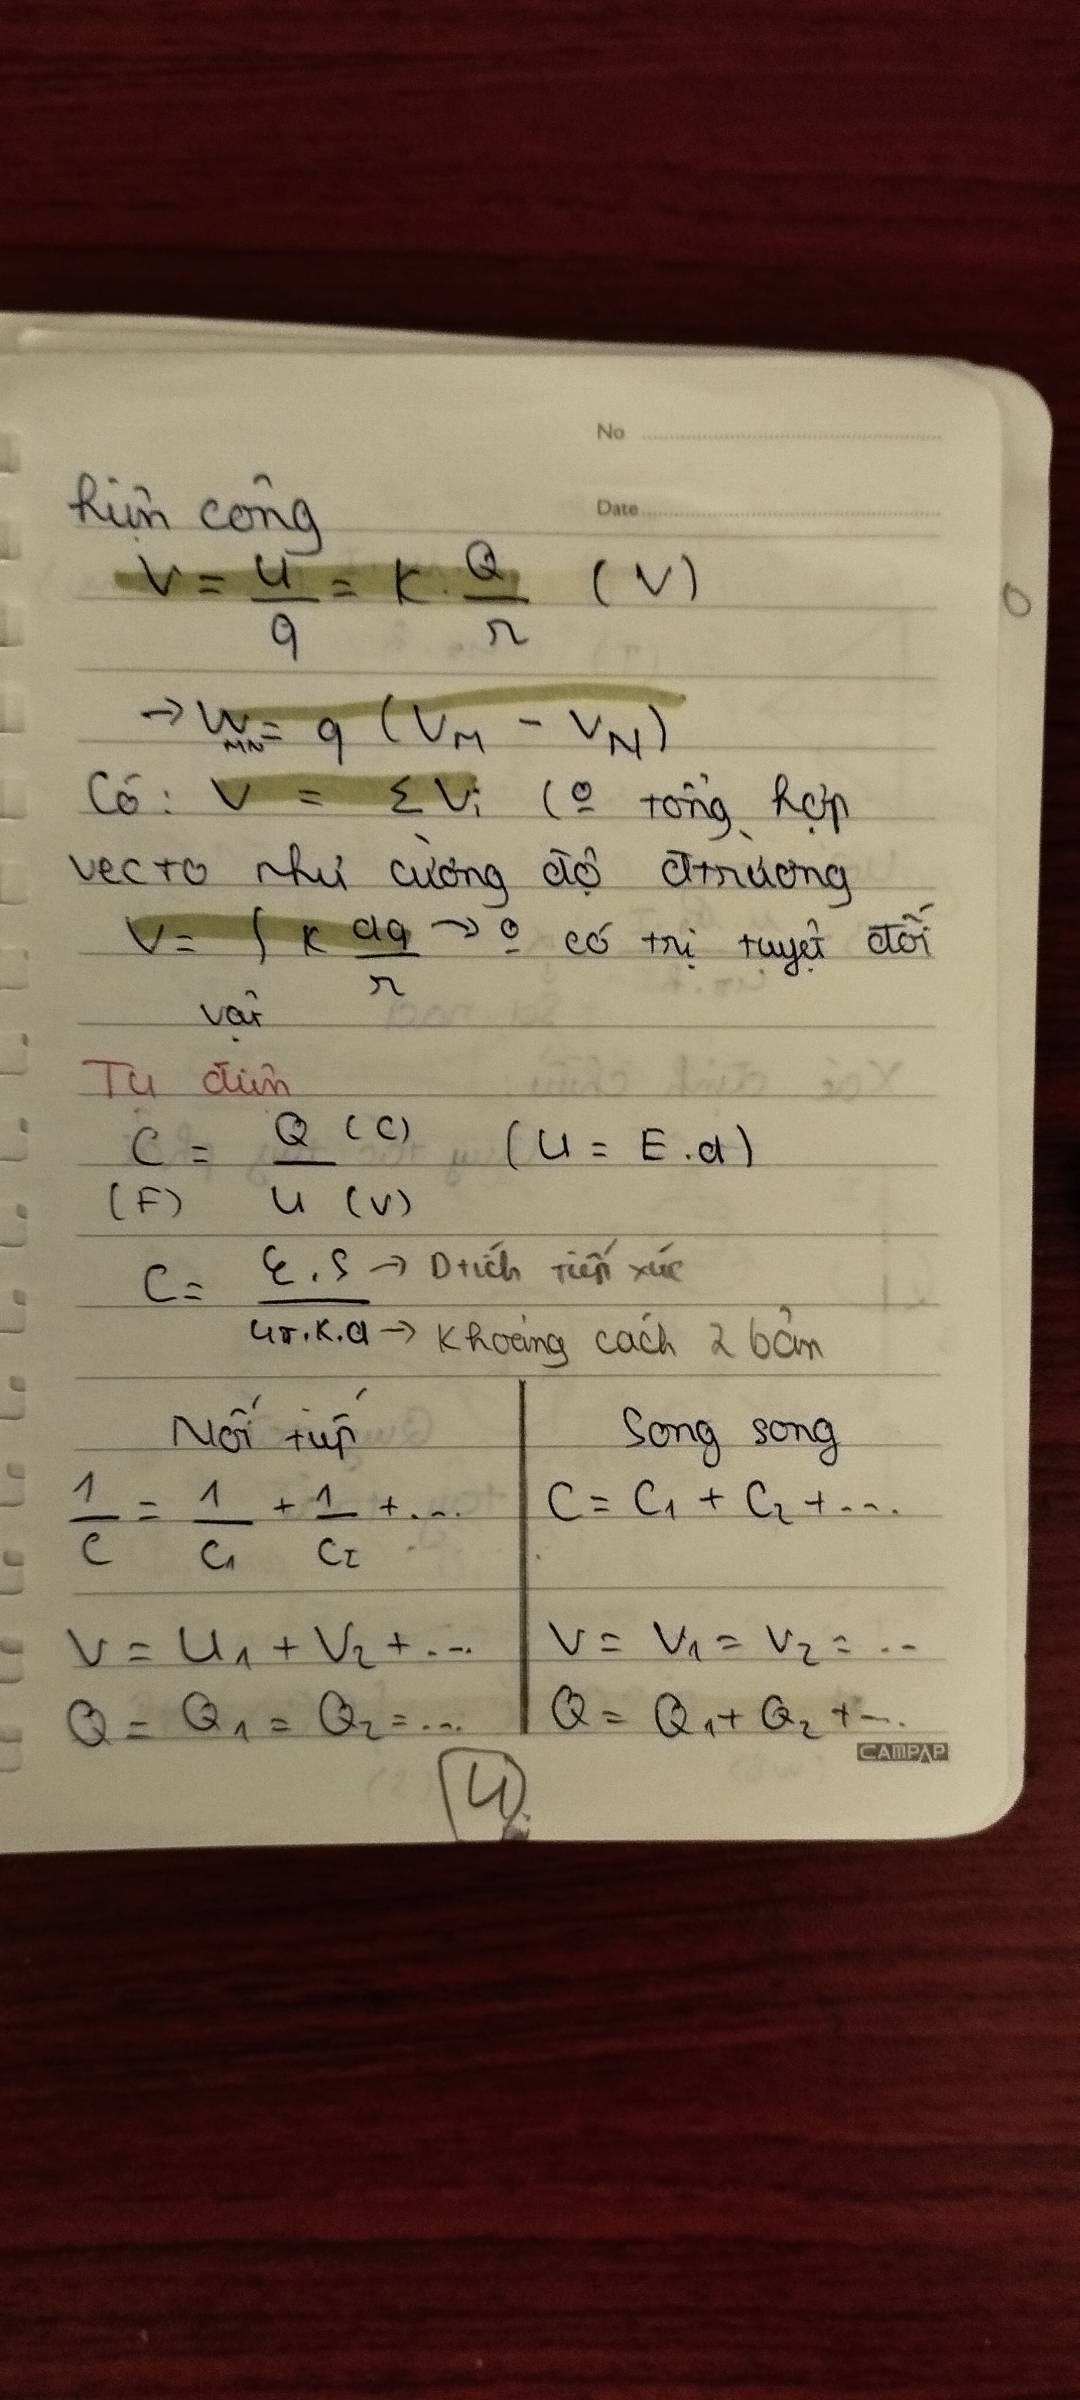 No
hiện công
Date
V = U/q = K. Q/r (V)
→ W_MN = q (V_M - V_N)
Có: V = ΣVi (o tổng hợp
vecto như cường độ đtrường
V = ∫ K dq/r → o có trị tuyệt đối
Tụ điện
C = Q (C) / U (V) (U = E.d)
(F)
C = ε.S → Dtích tiếp xúc
4π.K.d → Khoảng cách 2 bản
Nối tiếp | Song song
1/C = 1/C1 + 1/C2 + ... | C = C1 + C2 + ...
V = U1 + V2 + ... | V = V1 = V2 = ...
Q = Q1 = Q2 = ... | Q = Q1 + Q2 + ...
CAMPAP
4